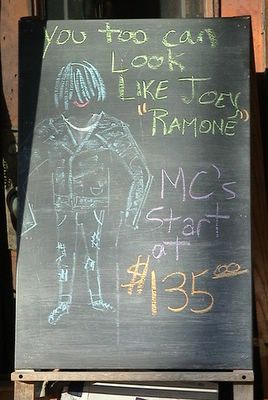 You too can
Look
Like Joey
"Ramone"
MC's
Start
at
$135.00